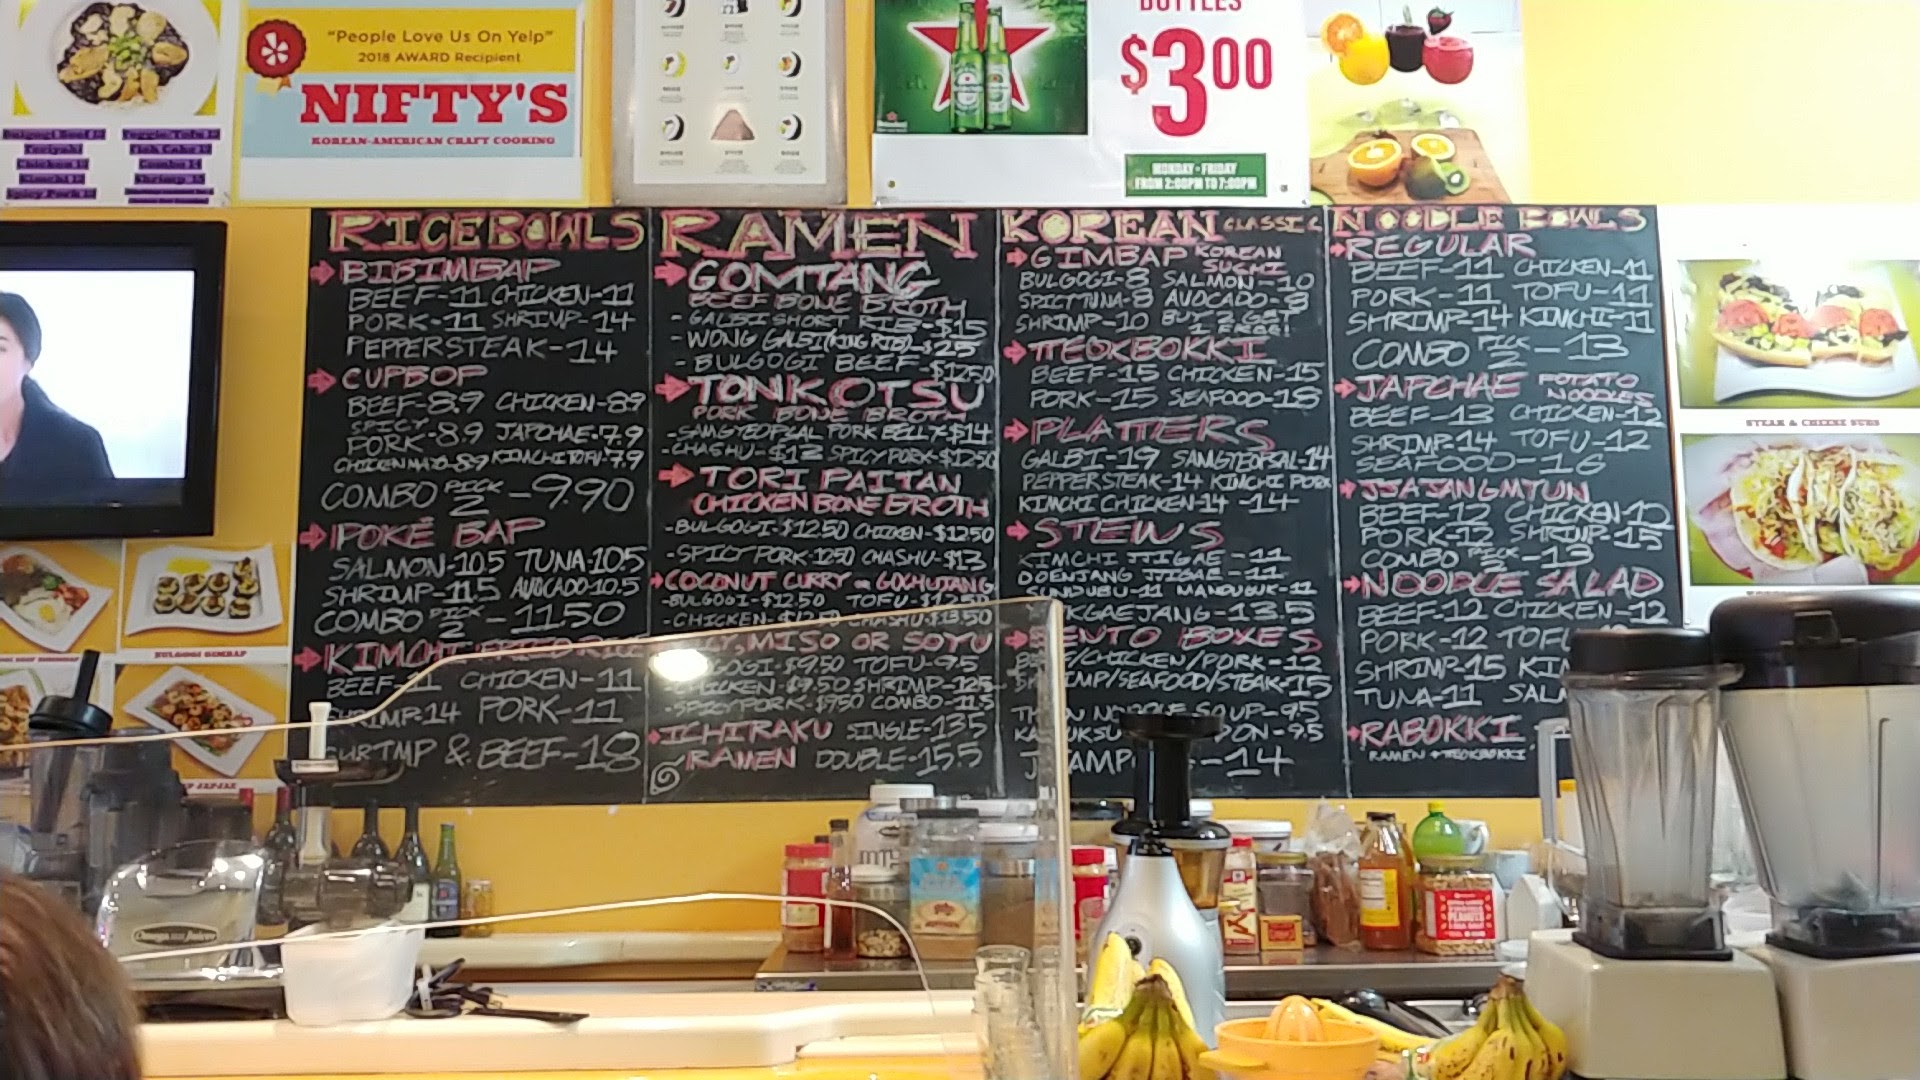 Bulgogi Beef 12
Teriyaki
Chicken 12
Kimchi 12
Spicy Pork 12
Veggie/Tofu 12
Fish Cake 12
Combo 14
Shrimp 15
"People Love Us On Yelp"
2018 AWARD Recipient
NIFTY'S
KOREAN-AMERICAN CRAFT COOKING
BOTTLES
$3.00
MONDAY - FRIDAY
FROM 2:00PM TO 7:00PM
RICE BOWLS
BIBIMBAP
BEEF-11 CHICKEN-11
PORK-11 SHRIMP-14
PEPPERSTEAK-14
CUPBOP
BEEF-8.9 CHICKEN-8.9
SPICY
PORK-8.9 JAPCHAE-7.9
CHICKEN MAYO-8.9 KIMCHI TOFU-7.9
COMBO PICK 2 -9.90
POKÉ BAP
SALMON-10.5 TUNA-10.5
SHRIMP-11.5 AVOCADO-10.5
COMBO PICK 2 -11.50
KIMCHI FRIED RICE
BEEF-11 CHICKEN-11
SHRIMP-14 PORK-11
SHRIMP & BEEF-18
RAMEN
GOMTANG
BEEF BONE BROTH
- GALBI SHORT RIB-$15
- WONG GALBI (KING RIB)-$25
- BULGOGI BEEF-$12.50
TONKOTSU
PORK BONE BROTH
-SAMGYEOPSAL PORK BELLY-$14
-CHASHU-$13 SPICY PORK-$12.50
TORI PAITAN
CHICKEN BONE BROTH
-BULGOGI-$12.50 CHICKEN-$12.50
-SPICY PORK-12.50 CHASHU-$13
COCONUT CURRY OR GOCHUJANG
-BULGOGI-$12.50 TOFU-$12.50
-CHICKEN-$12.50 CHASHU-$13.50
MISO OR SOYU
GOGI-$9.50 TOFU-9.5
-CHICKEN-$9.50 SHRIMP-12.5
-SPICY PORK-$9.50 COMBO-11.5
ICHIRAKU SINGLE-13.5
RAMEN DOUBLE-15.5
KOREAN CLASSIC
GIMBAP KOREAN SUSHI
BULGOGI-8 SALMON-10
SPICY TUNA-8 AVOCADO-8
SHRIMP-10 BUY 2 GET 1 FREE!
TTEOKBOKKI
BEEF-15 CHICKEN-15
PORK-15 SEAFOOD-18
PLATTERS
GALBI-19 SAMGYEOPSAL-14
PEPPERSTEAK-14 KIMCHI PORK
KIMCHI CHICKEN-14 -14
STEWS
KIMCHI JJIGAE -11
DOENJANG JJIGAE -11
SUNDUBU-11 MANDUGUK-11
YUKGAEJANG-13.5
BENTO BOXES
BEEF/CHICKEN/PORK-12
SHRIMP/SEAFOOD/STEAK-15
NOODLE SOUP-9.5
DON-9.5
-14
NOODLE BOWLS
REGULAR
BEEF-11 CHICKEN-11
PORK-11 TOFU-11
SHRIMP-14 KIMCHI-11
COMBO PICK 2 -13
JAPCHAE POTATO NOODLES
BEEF-13 CHICKEN-12
SHRIMP-14 TOFU-12
SEAFOOD-16
JJAJANGMYUN
BEEF-12 CHICKEN-12
PORK-12 SHRIMP-15
COMBO PICK 2 -13
NOODLE SALAD
BEEF-12 CHICKEN-12
PORK-12 TOFU
SHRIMP-15 KIM
TUNA-11 SALM
RABOKKI
RAMEN + TTEOKBOKKI
STEAK & CHEESE SUBS
BULGOGI GIMBAP
Omega Juicer
PEANUTS